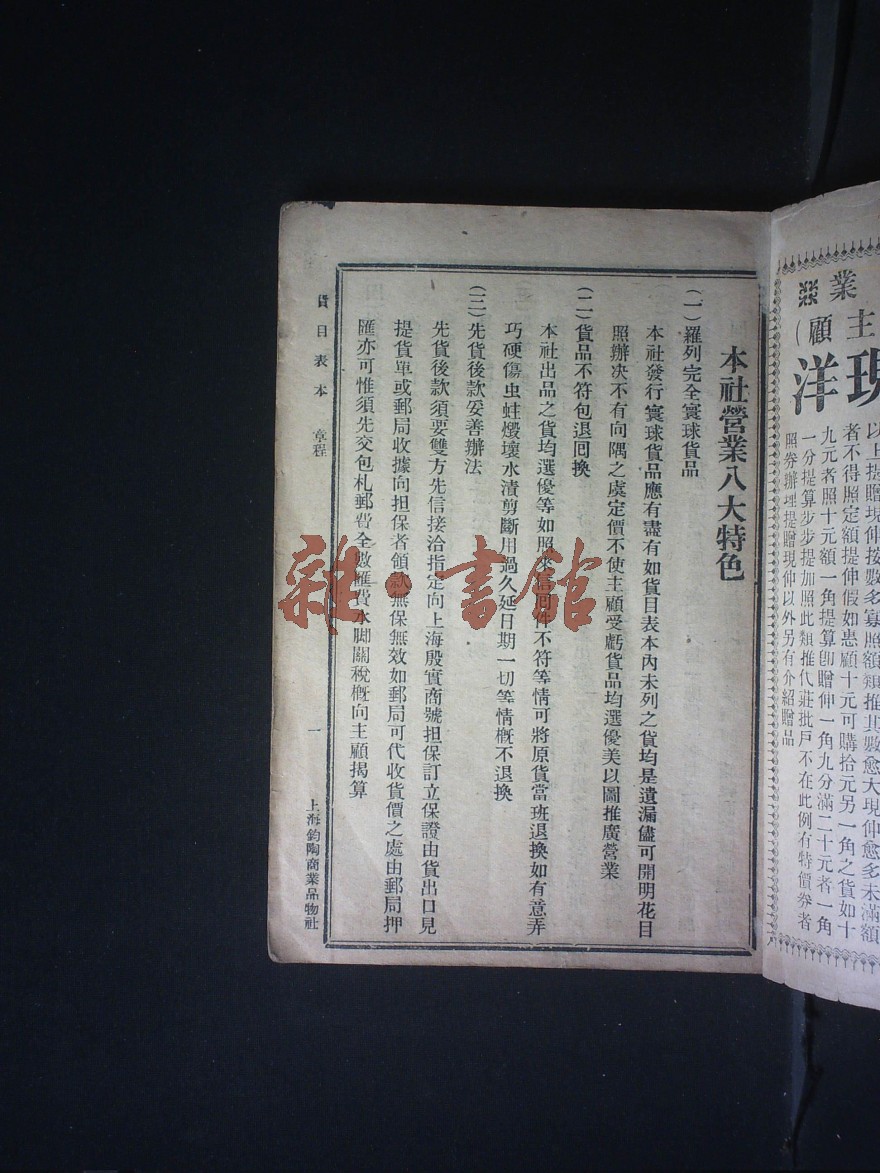 業
主顧（
現洋
以上提贈現伸按數多寡照額類推其數愈大現伸愈多未滿額
者不得照定額提伸假如惠顧十元可購拾元另一角之貨如十
九元者照十元額一角提算卽贈伸一角九分滿二十元者一角
一分提算步步提加照此類推代莊批戶不在此例有特價券者
照券辦理提贈現伸以外另有介紹贈品
本社營業八大特色
（一）羅列完全寰球貨品
本社發行寰球貨品應有盡有如貨目表本內未列之貨均是遺漏儘可開明花目
照辦决不有向隅之虞定價不使主顧受虧貨品均選優美以圖推廣營業
（二）貨品不符包退回換
本社出品之貨均選優等如照來信回件不符等情可將原貨當班退換如有意弄
巧硬傷虫蛀燬壞水漬剪斷用過久延日期一切等情槪不退換
（三）先貨後款妥善辦法
先貨後款須要雙方先信接洽指定向上海殷實商號担保訂立保證由貨出口見
提貨單或郵局收據向担保者領款無保無效如郵局可代收貨價之處由郵局押
匯亦可惟須先交包札郵費全數匯費水脚關稅槪向主顧揭算
貨目表本　章程
一
上海鈞陶商業品物社
雜·書館